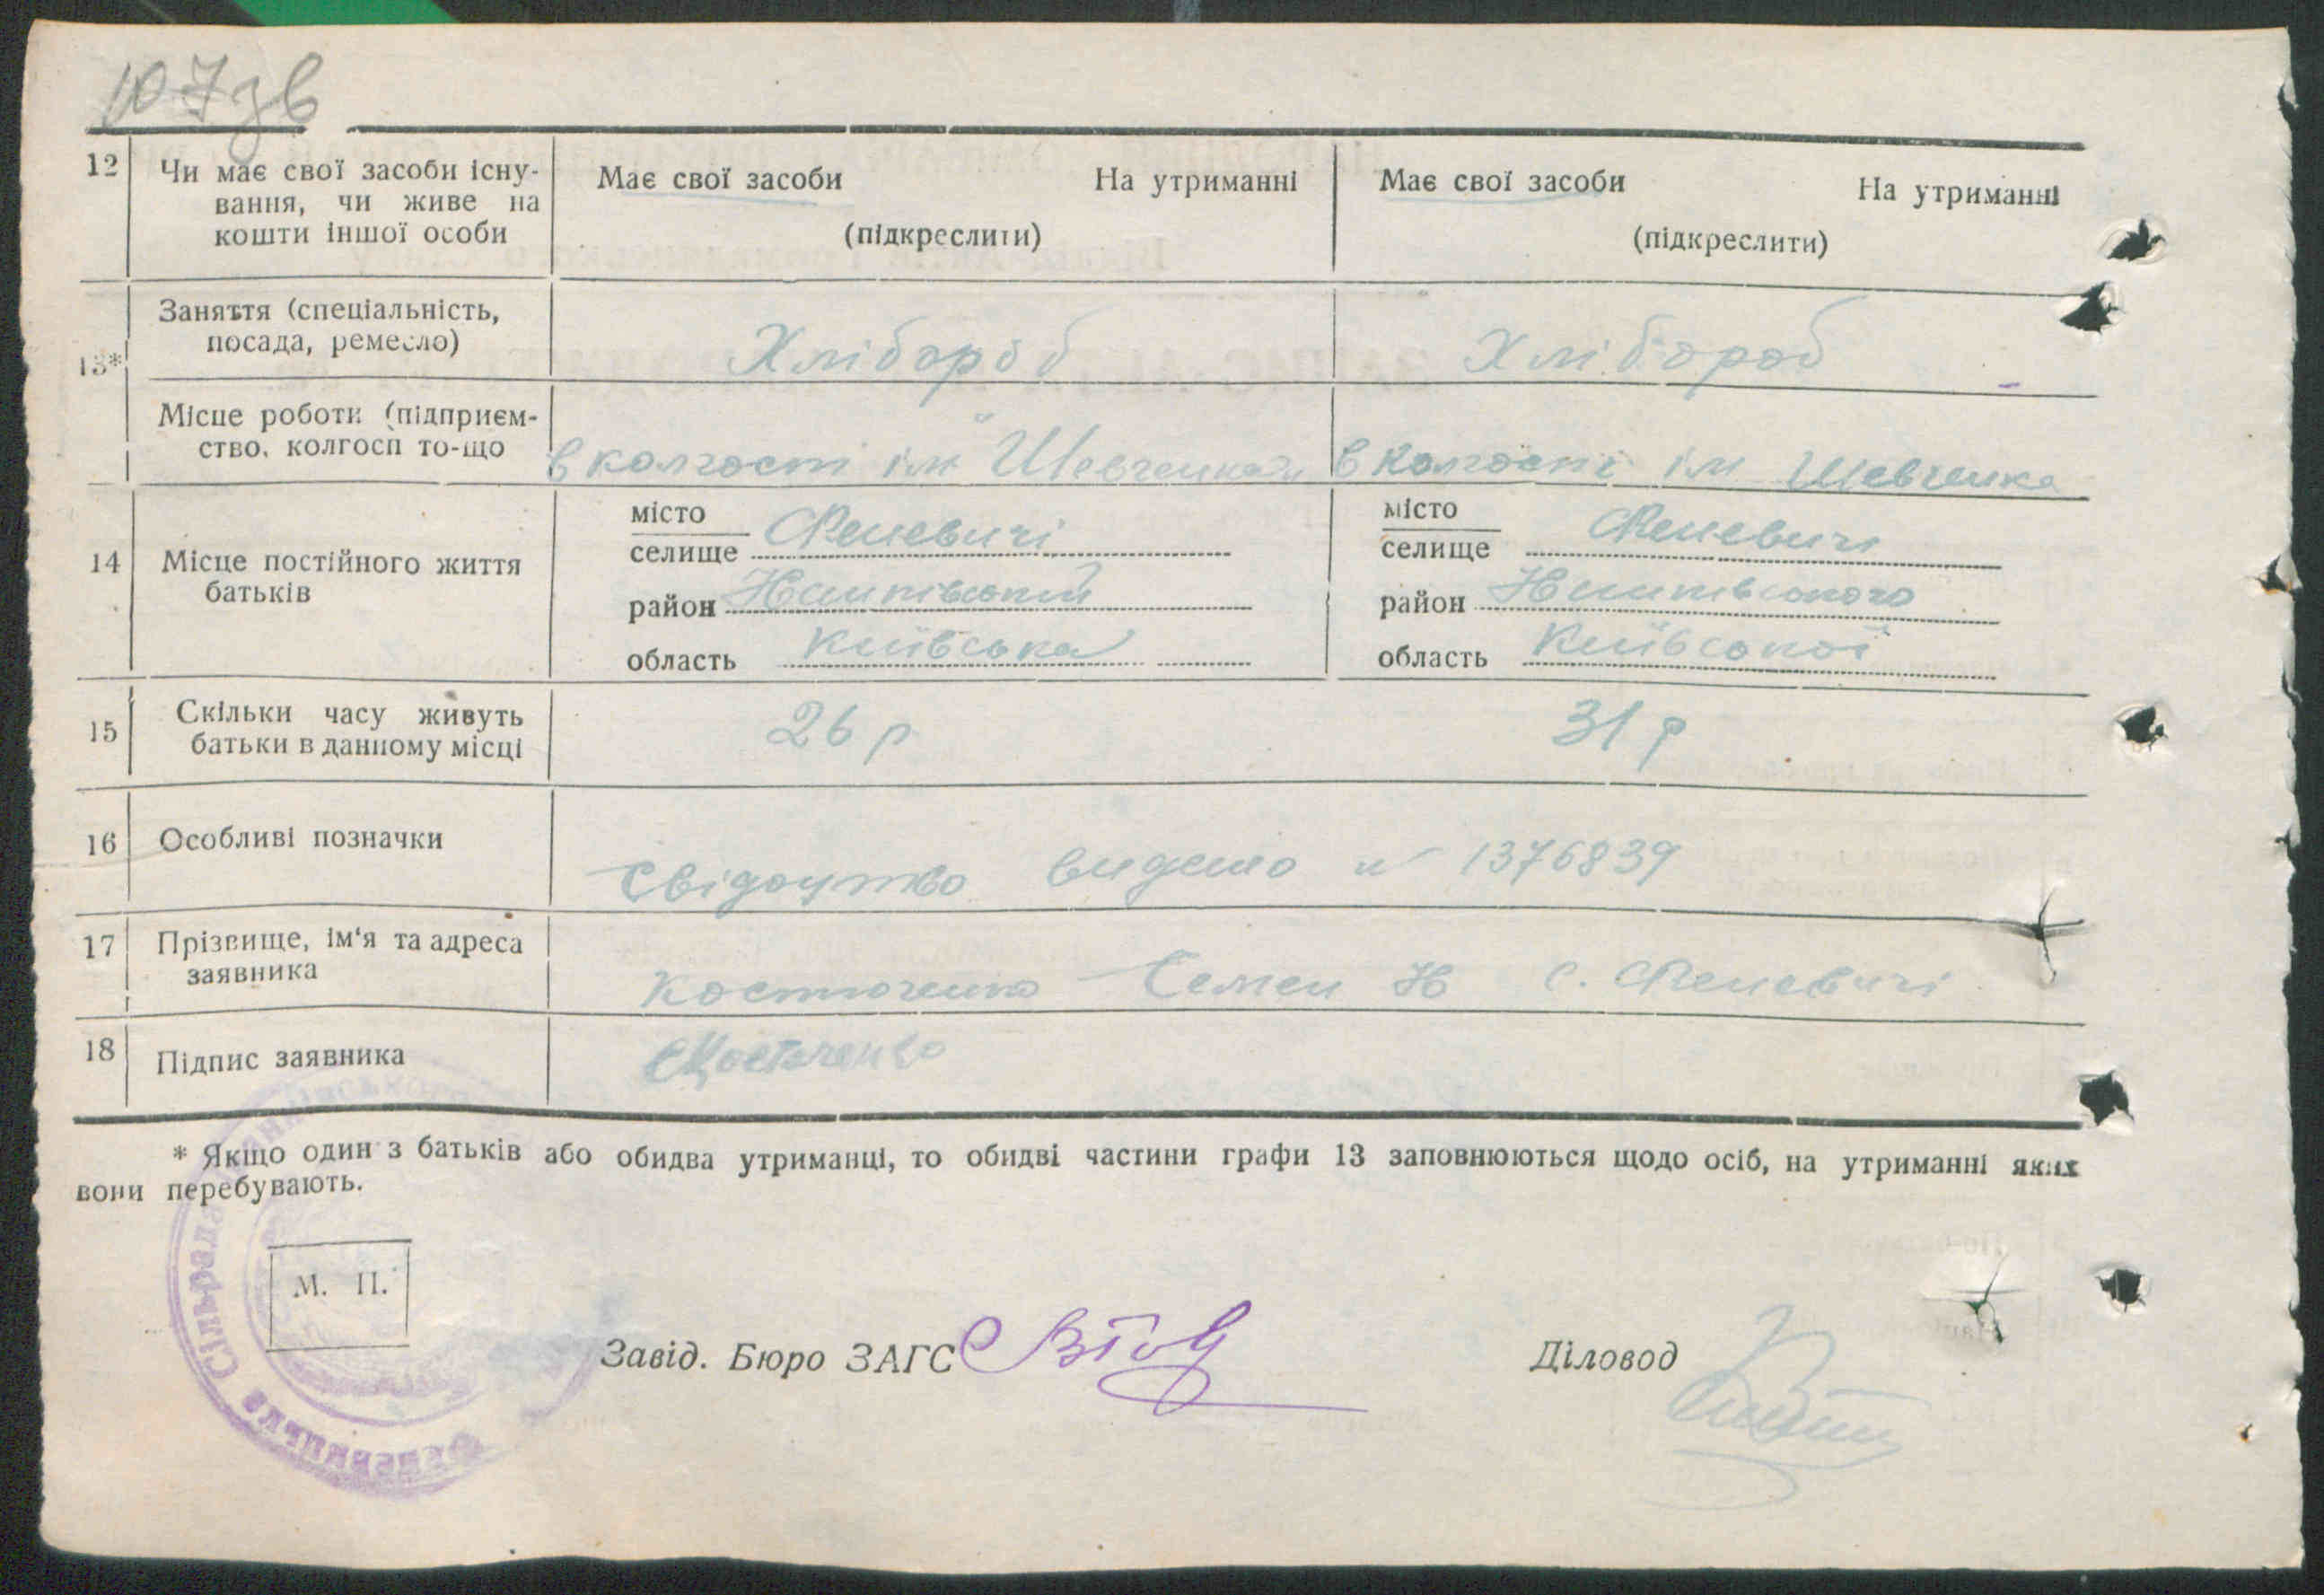 107зв
12 Чи має свої засоби існу- Має свої засоби На утриманні Має свої засоби На утриманні
вання, чи живе на
кошти іншої особи (підкреслити) (підкреслити)
13* Заняття (спеціальність,
посада, ремесло) Хлібороб Хлібороб
Місце роботи (підприєм-
ство, колгосп то-що в колгоспі ім Шевченка в колгоспі ім Шевченка
місто місто
селище Феневичі селище Феневичі
14 Місце постійного життя
батьків
район район
область Київська область Київської
15 Скільки часу живуть
батьки в данному місці 26 р 31 р
16 Особливі позначки
Свідоцтво видано № 1376839
17 Прізвище, ім'я та адреса
заявника Костюченко Семен Н с. Феневичі
18 Підпис заявника СКостюченко
* Якщо один з батьків або обидва утриманці, то обидві частини графи 13 заповнюються щодо осіб, на утриманні яких
вони перебувають.
М. П.
Феневицька Сільрада
Завід. Бюро ЗАГС Діловод